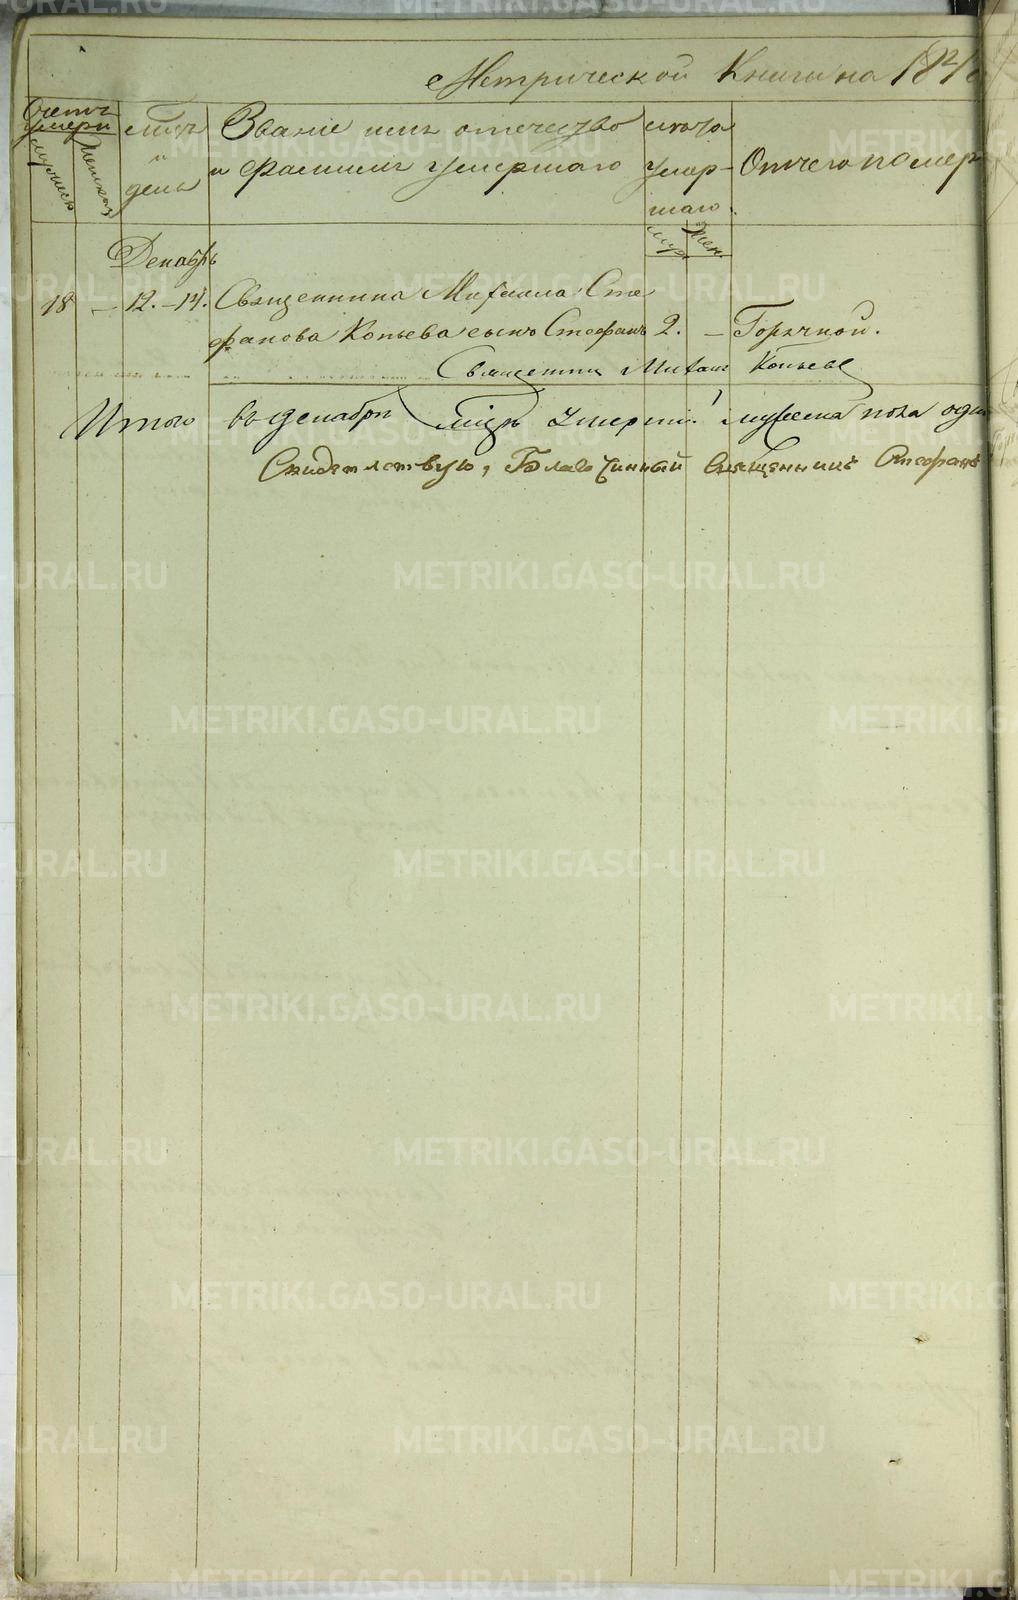 Метрической Книги на 184
Счетъ умерш
мужеск
женска
мцъ и день
Званіе имя отечество и фамилия умершаго
лѣта умер-шаго
муж.
жен.
Отчего померъ
Декабрь
18 – 12.–14. Священника Михаила Сте
фанова Копьева сынъ Стефанъ 2. – Горячкой.
Священникъ Михаилъ Копьевъ
Итого въ декабрѣ мцѣ умерш. мужеска пола один
Свидетельствую, Благочинный Священникъ Стефанъ
METRIKI.GASO-URAL.RU